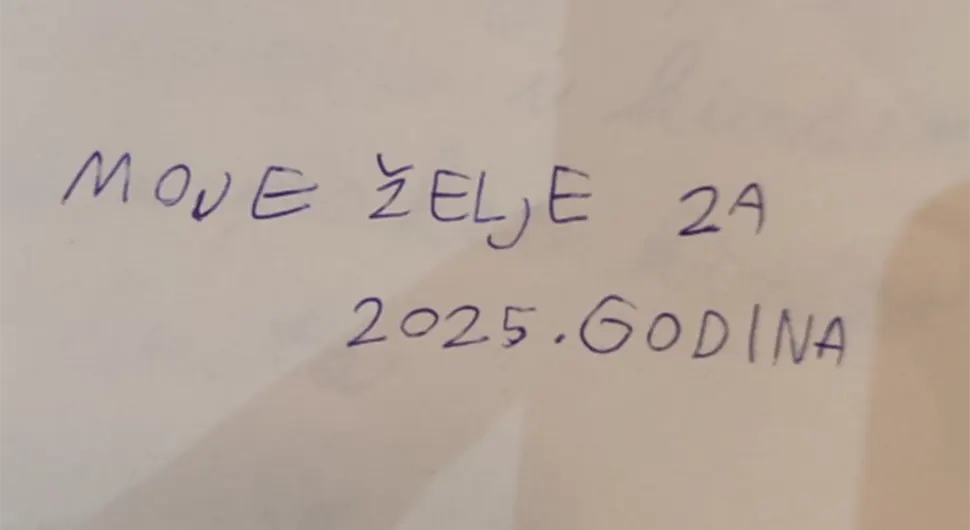 MOJE ŽELJE ZA
2025. GODINA